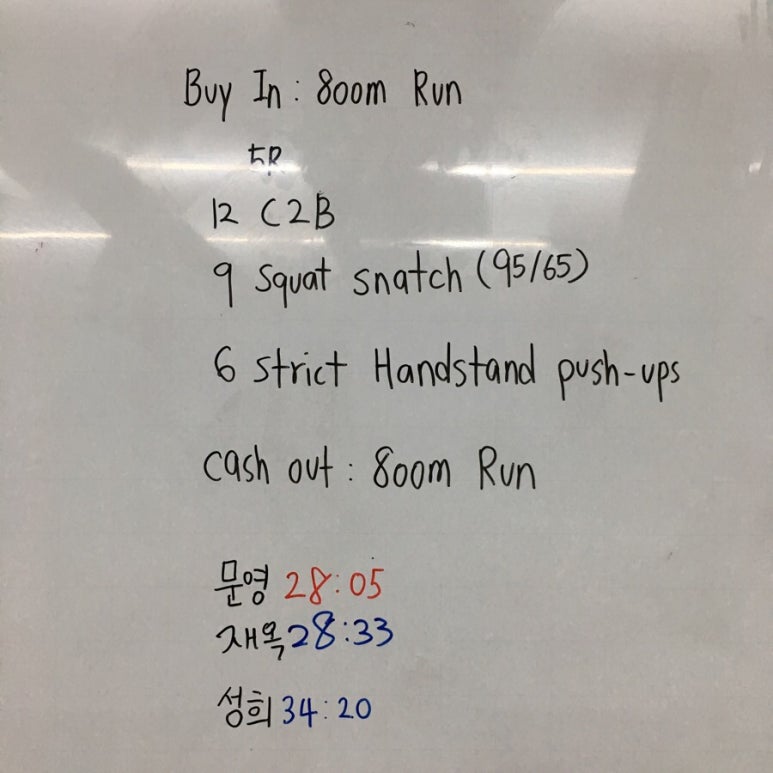 Buy In : 800m Run
5R
12 C2B
9 Squat snatch (95/65)
6 strict Handstand push-ups
cash out : 800m Run
문영 28:05
재옥 28:33
성희 34:20